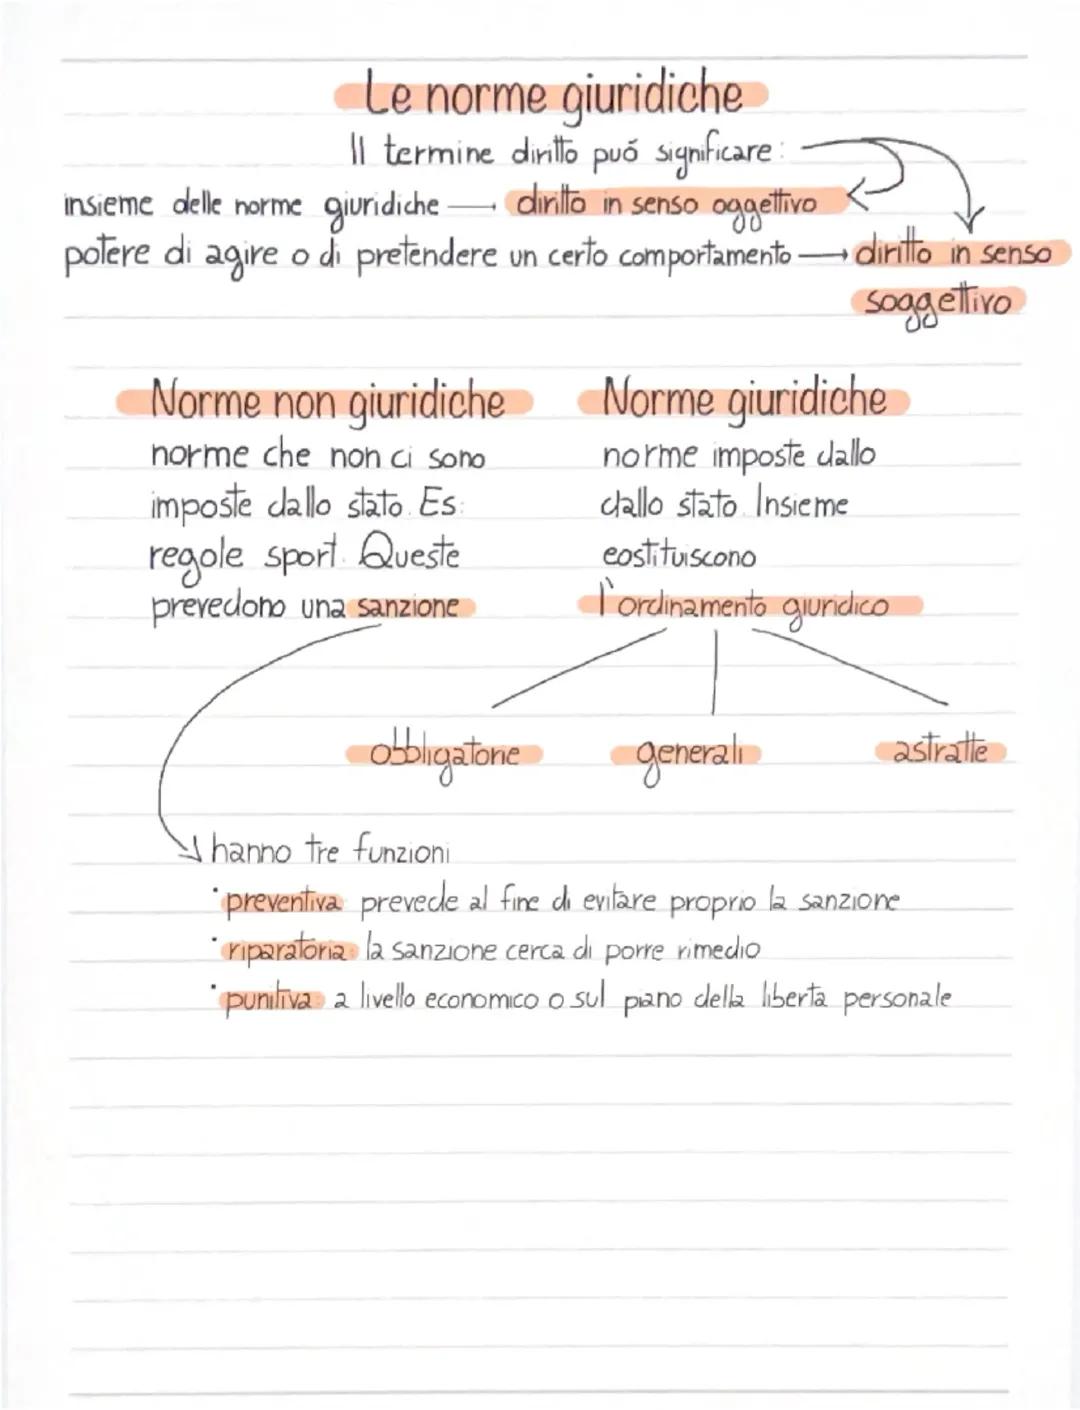 Le norme giuridiche
Il termine diritto puó significare:
insieme delle norme giuridiche → diritto in senso oggettivo
potere di agire o di pretendere un certo comportamento → diritto in senso
soggettivo
Norme non giuridiche
norme che non ci sono
imposte dallo stato. Es:
regole sport. Queste
prevedono una sanzione
Norme giuridiche
norme imposte dallo
dallo stato. Insieme
costituiscono
l'ordinamento giuridico
obbligatorie
generali
astratte
hanno tre funzioni
• preventiva: prevede al fine di evitare proprio la sanzione
• riparatoria: la sanzione cerca di porre rimedio
• punitiva: a livello economico o sul piano della libertà personale